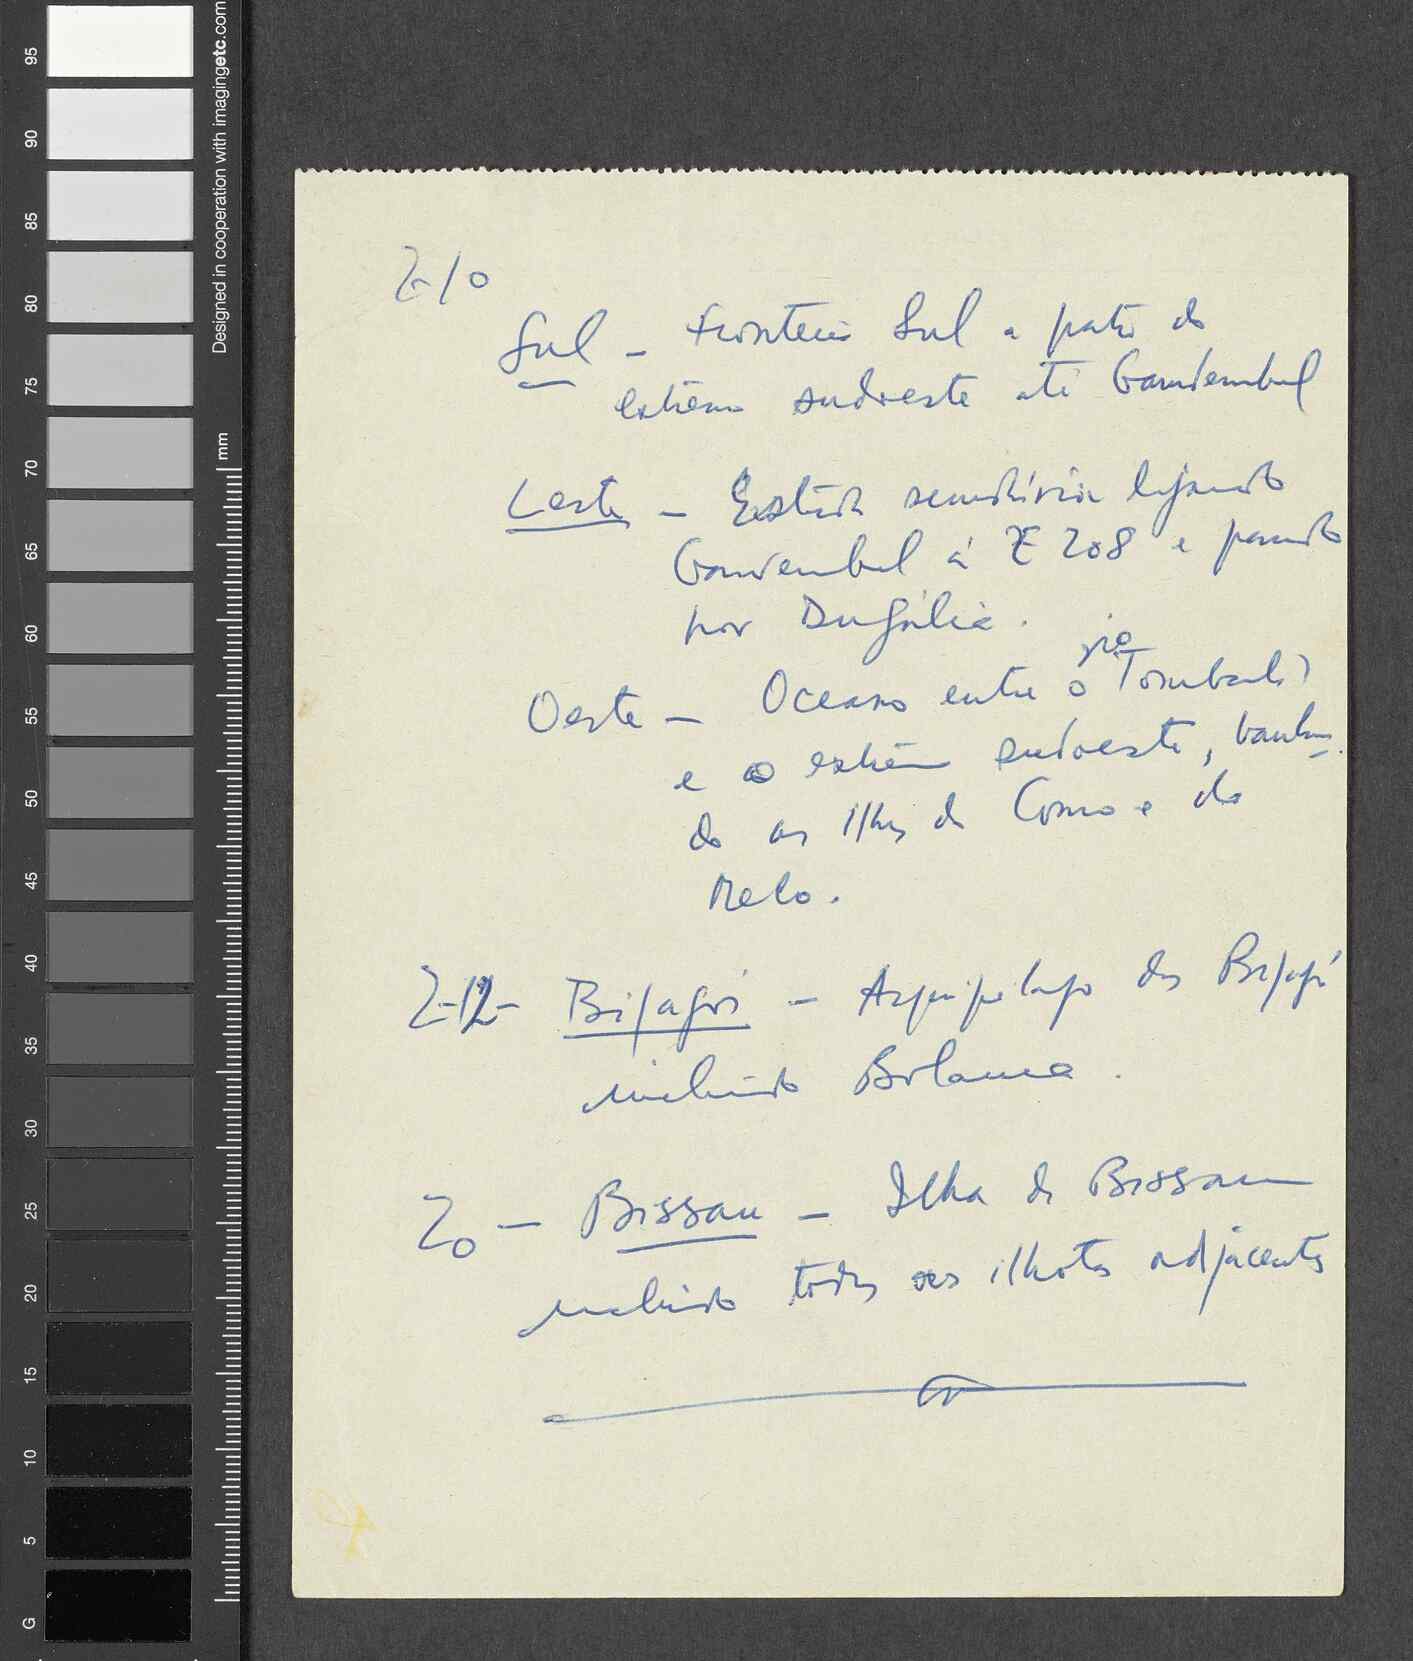 Z-10
Sul - Fronteira Sul a partir do
extremo sudoeste até Gandembel
Leste - Estrada secundária ligando
Gandembel à E 208 e passando
por Bufália.
rio
Oeste - Oceano entre o Tombali
e o extremo sudoeste, banhan-
do as ilhas de Como e do
Melo.
Z-12- Bijagós - Arquipélago dos Bijagós
incluindo Bolama.
Z0 - Bissau - Ilha de Bissau
incluindo todos os ilhotes adjacentes
95
90
85
80
75
70
65
60
55
50
45
40
35
30
25
20
15
10
5
G
mm
Designed in cooperation with imagingetc.com